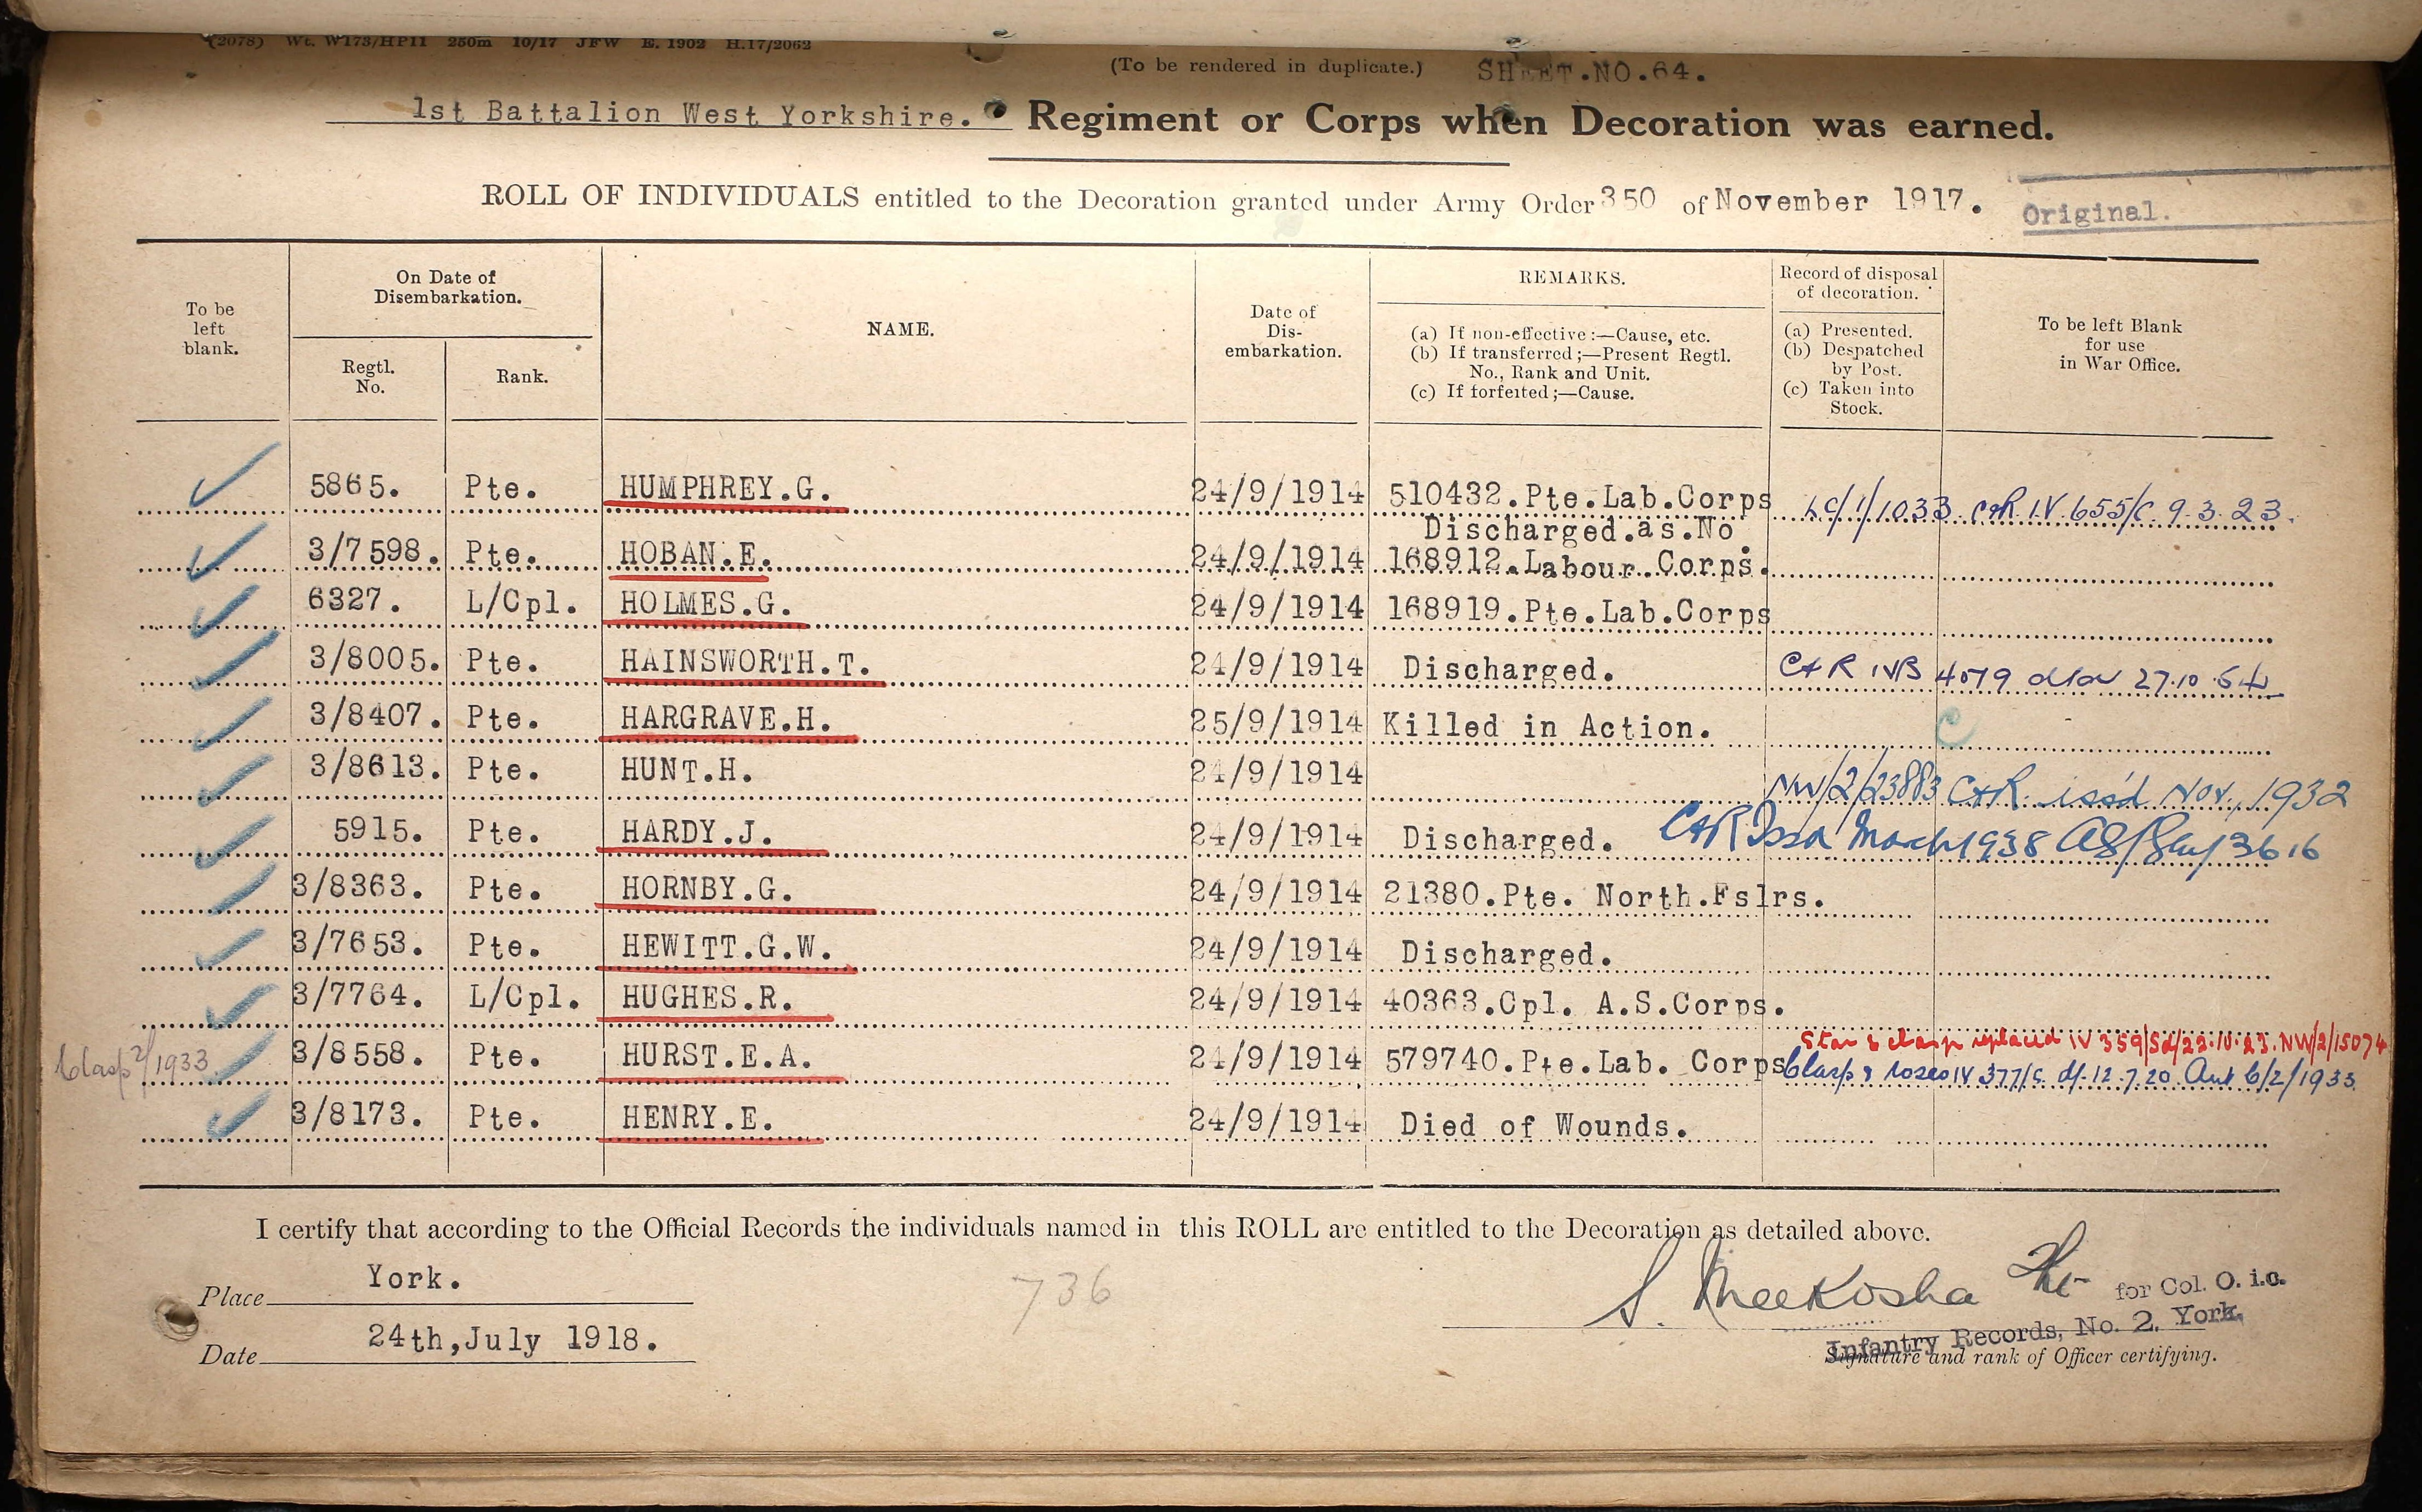 (2078) Wt. W173/HP11 250m 10/17 JFW E. 1902 H.17/2062
(To be rendered in duplicate.) SHEET.NO.64.
1st Battalion West Yorkshire. Regiment or Corps when Decoration was earned.
ROLL OF INDIVIDUALS entitled to the Decoration granted under Army Order 350 of November 1917. Original.
To be left blank.
On Date of Disembarkation.
Regtl. No.
Rank.
NAME.
Date of Dis- embarkation.
REMARKS.
(a) If non-effective:—Cause, etc.
(b) If transferred;—Present Regtl. No., Rank and Unit.
(c) If forfeited;—Cause.
Record of disposal of decoration.
(a) Presented.
(b) Despatched by Post.
(c) Taken into Stock.
To be left Blank for use in War Office.
5865. Pte. HUMPHREY.G. 24/9/1914 510432.Pte.Lab.Corps LC/1/1033 C&R IV.655/C. 9.3.23.
3/7598. Pte. HOBAN.E. 24/9/1914 Discharged.as.No. 168912.Labour.Corps.
6327. L/Cpl. HOLMES.G. 24/9/1914 168919.Pte.Lab.Corps
3/8005. Pte. HAINSWORTH.T. 24/9/1914 Discharged. C&R IVB 27.10
3/8407. Pte. HARGRAVE.H. 25/9/1914 Killed in Action. C
3/8613. Pte. HUNT.H. 24/9/1914 NW/2/23883 C&R. iss'd Nov., 1932
5915. Pte. HARDY.J. 24/9/1914 Discharged. C&R Issd March 1938 3616
3/8363. Pte. HORNBY.G. 24/9/1914 21380.Pte. North.Fslrs.
3/7653. Pte. HEWITT.G.W. 24/9/1914 Discharged.
3/7764. L/Cpl. HUGHES.R. 24/9/1914 40363.Cpl. A.S.Corps.
Star & clasp replaced IV 359/Sd/23.10.23. NW/2/15074
Clasp 2/1933 3/8558. Pte. HURST.E.A. 24/9/1914 579740.Pte.Lab. Corps Clasp & roses IV 377/C d/- 12.7.20. Aut 6/2/1933
3/8173. Pte. HENRY.E. 24/9/1914 Died of Wounds.
I certify that according to the Official Records the individuals named in this ROLL are entitled to the Decoration as detailed above.
Place York.
736
S. Meekosha for Col. O. i.c.
Infantry Records, No. 2. York.
Date 24th,July 1918.
Signature and rank of Officer certifying.